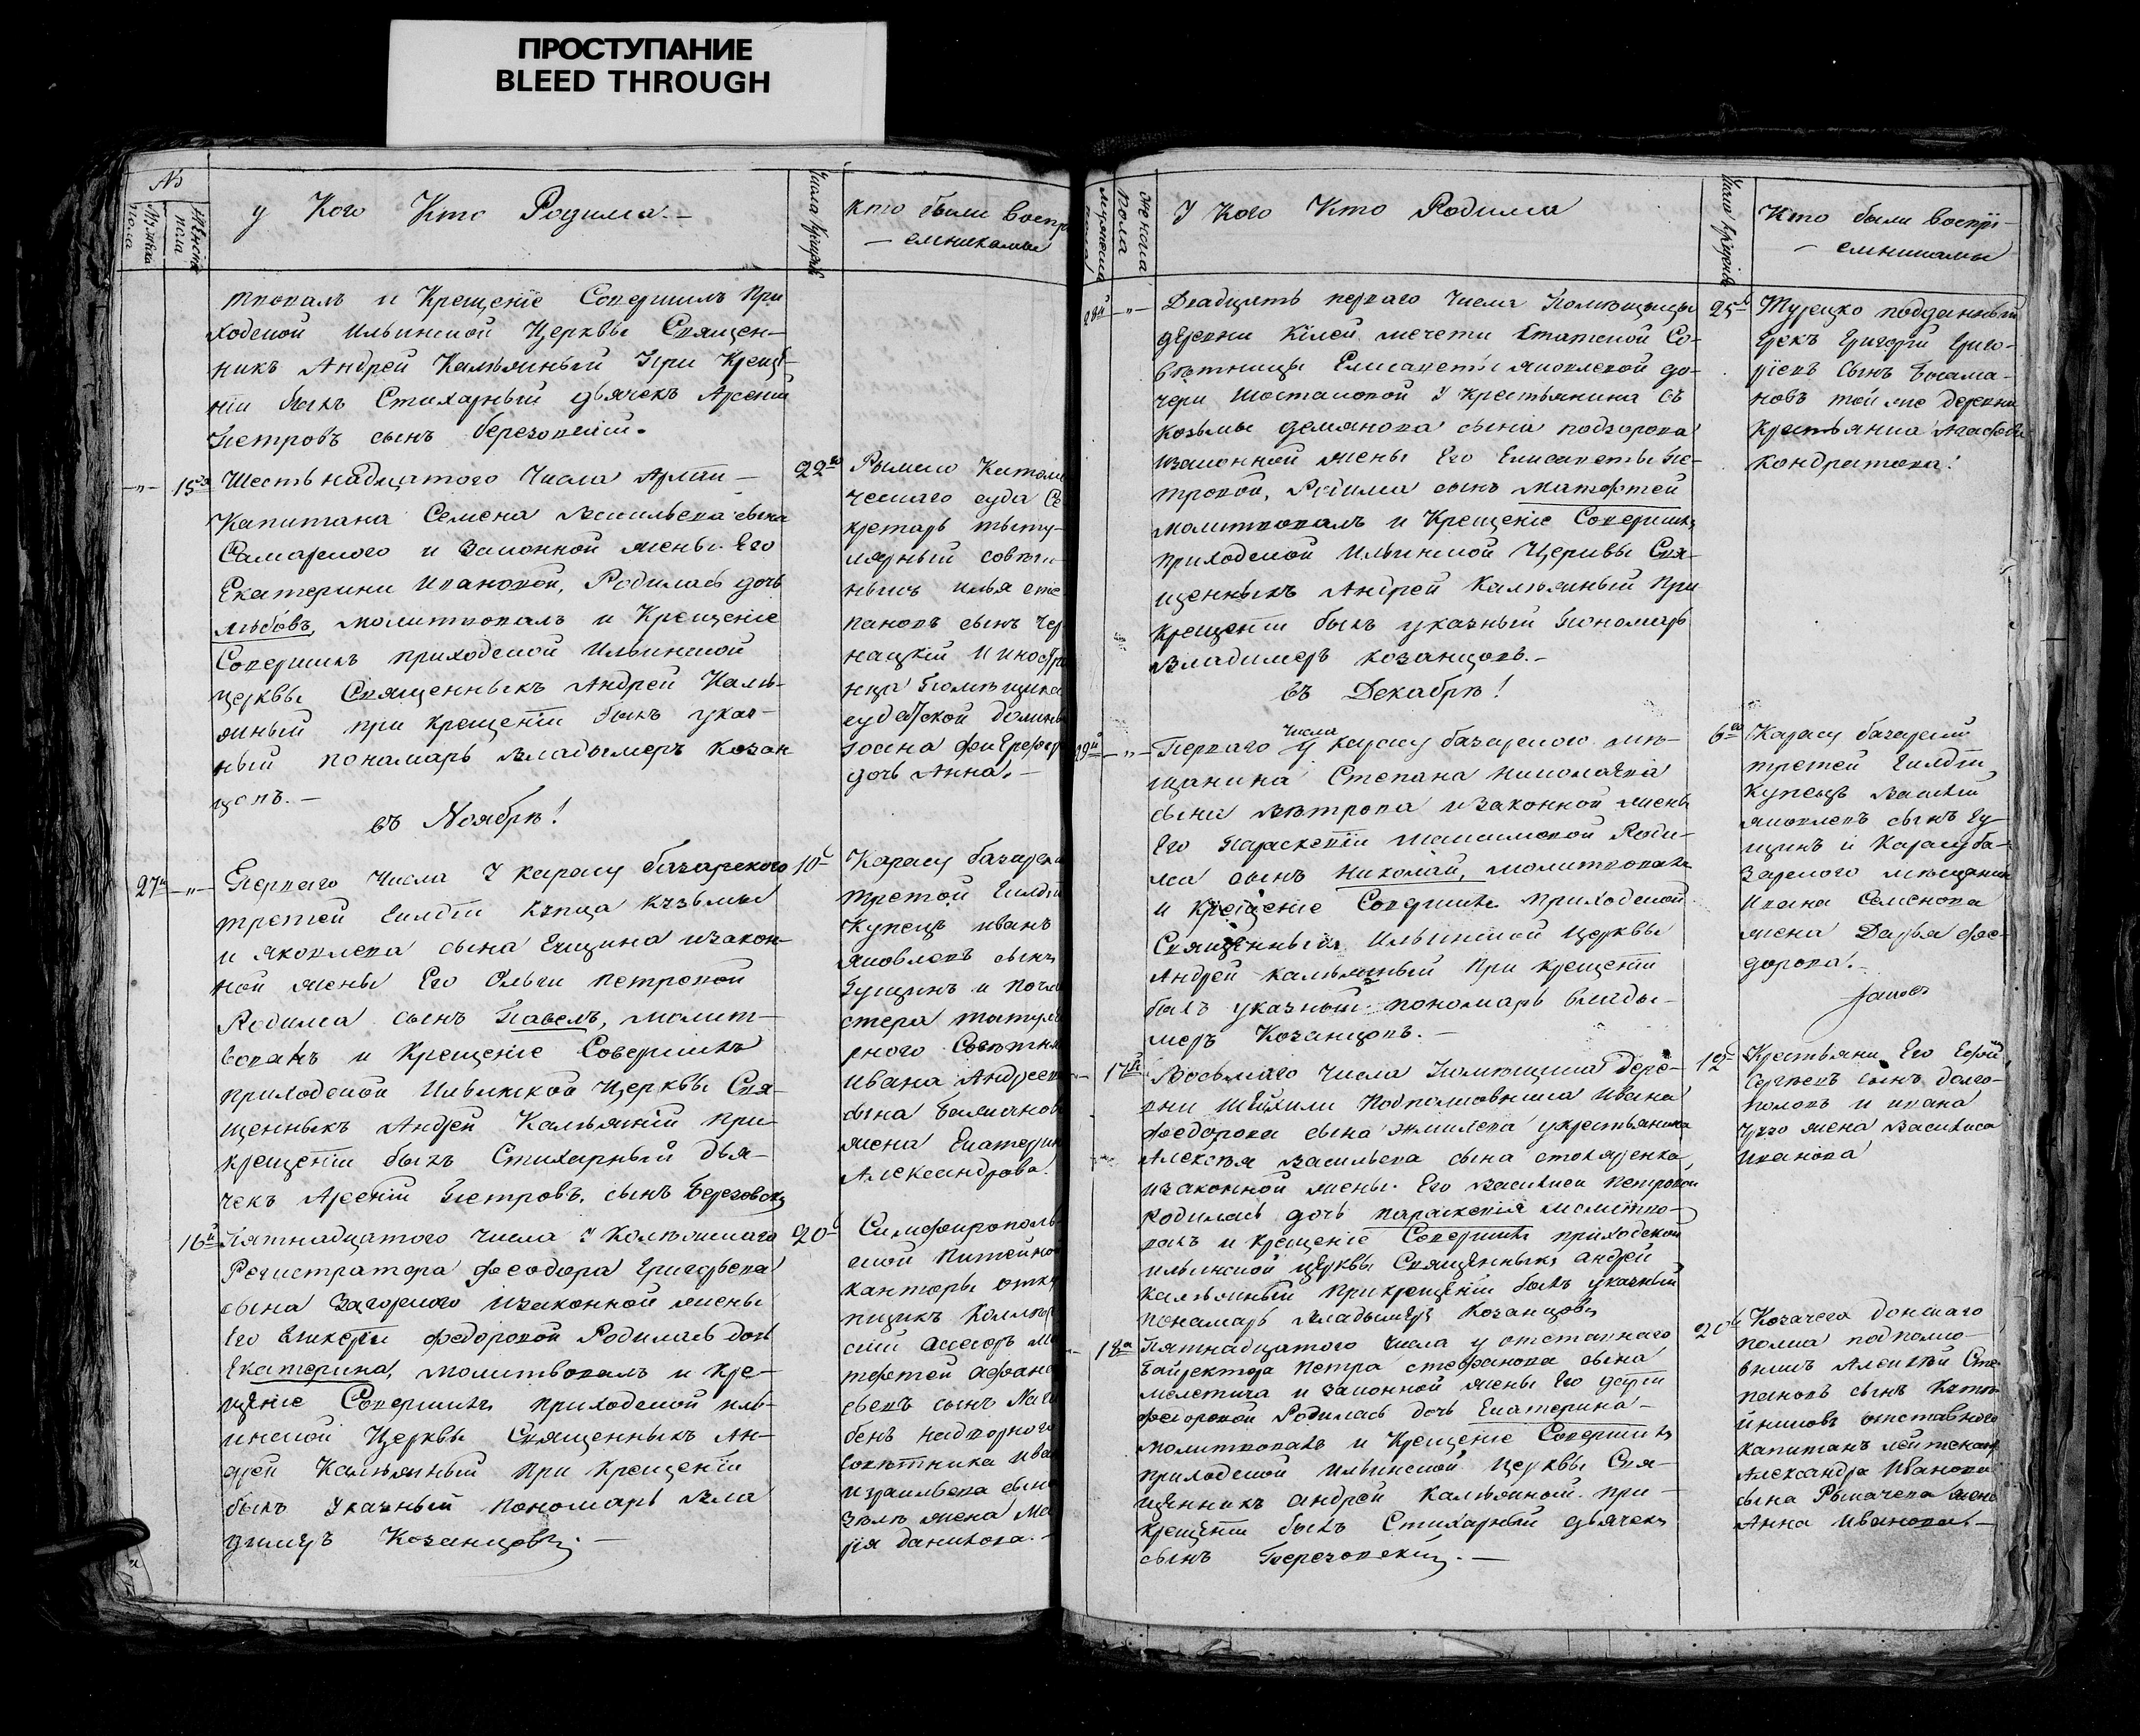 ПРОСТУПАНИЕ
BLEED THROUGH
№
Мужеска пола
Женска пола
У Кого Кто Родился.-
Числа крещен
Кто были воспр
- емниками
твовалъ и Крещеніе Совершилъ При
ходской Ильинской Церквы Священ-
никъ Андрей Калияный При Креще-
ніи былъ Стихарный дьячекъ Арсеній
Петровъ сынъ березовскій.
-"- 15я Шестьнадцатого Числа Арміи -
Капитана Семена Васильева сына
Самарского и Законной жены Его
Екатерины Ивановой, Родилась дочь
Любовъ, молитвовалъ и Крещеніе
Совершилъ приходской Ильинской
церквы Священныкъ Андрей Каль-
яный при крещеніи былъ указ-
ный пономарь Владымеръ Козан
цовъ.-
22го
Рымско Католи
ческаго суда Се
кретарь тыту-
лярный совѣт-
ныкъ Илья сте
пановъ сынъ Чер
нацкій и иностра
нца Помѣщика
судакской долины
дочь Анна.-
въ Ноябрѣ!
27й -"- Перваго Числа У карасу базарского
третей Гилдіи купца Кузьмы
Яковлева сына Гущина и закон-
ной жены Его Ольги Петровой
Родился сынъ Павелъ, молит-
вовалъ и Крещеніе Совершилъ
приходской Ильинской Церквы Свя-
щенныкъ Андрей Кальяній при
крещеніи былъ Стихарный дья-
чекъ Арсеній Петровъ сынъ Березовскі
10
Карасу базарск
третой Гилдіи
Купецъ Иванъ
Яковлевъ сынъ
Гущинъ и Почм
стера титуля
рного Совѣтни
Ивана Андреев
сына
жена Екатерин
Александрова.
16я Пятнадцатого Числа У Колѣжскаго
Регистратора Феодора Григорьева
сына Загорского и законной жены
Его Федоровой Родилась дочь
Екатерина, молитвовалъ и Кре-
щеніе Совершилъ приходской иль-
инской Церквы Священныкъ Ан-
дрей Кальяный При Крещеніи
былъ Указный пономарь Вла
димеръ Козанцовъ.-
20
Симферополь
ской Питейной
канторы отку
пщикъ Коллеж
скій Асесоръ Ма
тфей Афанас
ьевъ сынъ
надворного
Совѣтника Ива
Израильева сына
жена Ма
рія данилова.-
Мужеска пола
женска Пола
У Кого Кто Родился
Числа Крещенія
Кто были воспрі-
- емниками
28й -"- Двадцять перваго Числа Помѣщыцы
деревни Кілей мечети Статской Со-
вѣтницы Елисаветы Яковлевой до-
чери Шостаковой У Крестьянина Съ
Козьмы демянова сына подгорова
и законной жены Его Елисаветы Пе-
тровой, Родился сынъ Матфтей
молитвовалъ и Крещеніе Совершилъ
приходской Ильинской Церквы Свя-
щенныкъ Андрей Кальяный При
Крещеніи былъ указный Пономарь
Владимеръ Козанцовъ.-
25
Турецко подданный
Грекъ Григорій Григо-
ріевъ сынъ
новъ той же деревни
крестьянка Агафія
Кондратова!
въ Декабрѣ!
29й -"- Перваго Числа у карасу базарского мѣ-
щанина Степана Николаева
сына Вѣтрова и законной жены
Его Параскевіи Максимовой Роди-
лся сынъ Николай, молитвовалъ
и Крещеніе Совершилъ приходской
Священныкъ Ильинской церквы
Андрей Кальяный При крещеніи
былъ указный пономарь влады-
меръ Козанцовъ.-
6го
Карасу базарскій
третей Гилдіи
Купецъ Василій
Яковлевъ сынъ Гу-
щинъ и Карасу ба-
зарского мѣщанина
Ивана Семенова
жена Дарья Фео-
дорова.-
17я Восьмаго Числа Помѣщика дере-
вни Шейхили Подполковника Ивана
Федорова сына у крестьянина
Алексѣя Васильева сына столяренка
и законной жены Его Василиси Петровой
родилась дочь параскевія молитво-
валъ и крещеніе Совершилъ приходской
ильинской церквы Священныкъ андрей
кальяный При крещеніи былъ указный
пономарь Владымеръ Козанцовъ
12
Крестьяни Его
Сергѣевъ сынъ долго-
половъ и ивана
жена Василиса
Иванова
18я Пятнадцатого Числа у отставнаго
Петра стефанова сына
и Законной жены Его
федоровой Родилась дочь Екатерина-
молитвовалъ и Крещеніе Совершилъ
приходской Ильинской Церквы Свя-
щенникъ андрей Кальяной при-
крещеніи былъ Стихарный дьячекъ
сынъ Березовскій.-
20
Козачего донскаго
полка подполко-
вникъ Алексѣй Сте
пановъ сынъ
отставного
капитанъ лейтенанта
Александра Иванова
сына жена
Анна Иванова-